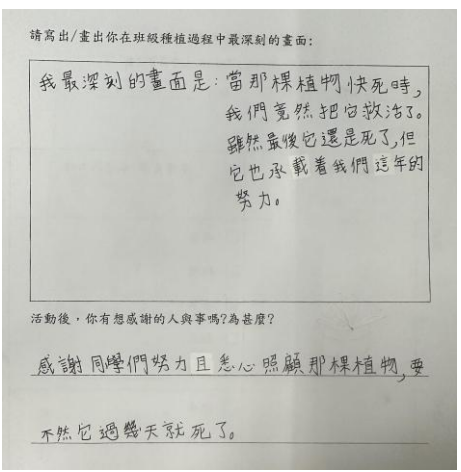 請寫出/畫出你在班級種植過程中最深刻的畫面:
我最深刻的畫面是:當那棵植物快死時,
我們竟然把它救活了。
雖然最後它還是死了,但
它也承載着我們這年的
努力。
活動後,你有想感謝的人與事嗎?為甚麼?
感謝同學們努力且悉心照顧那棵植物,要
不然它過幾天就死了。